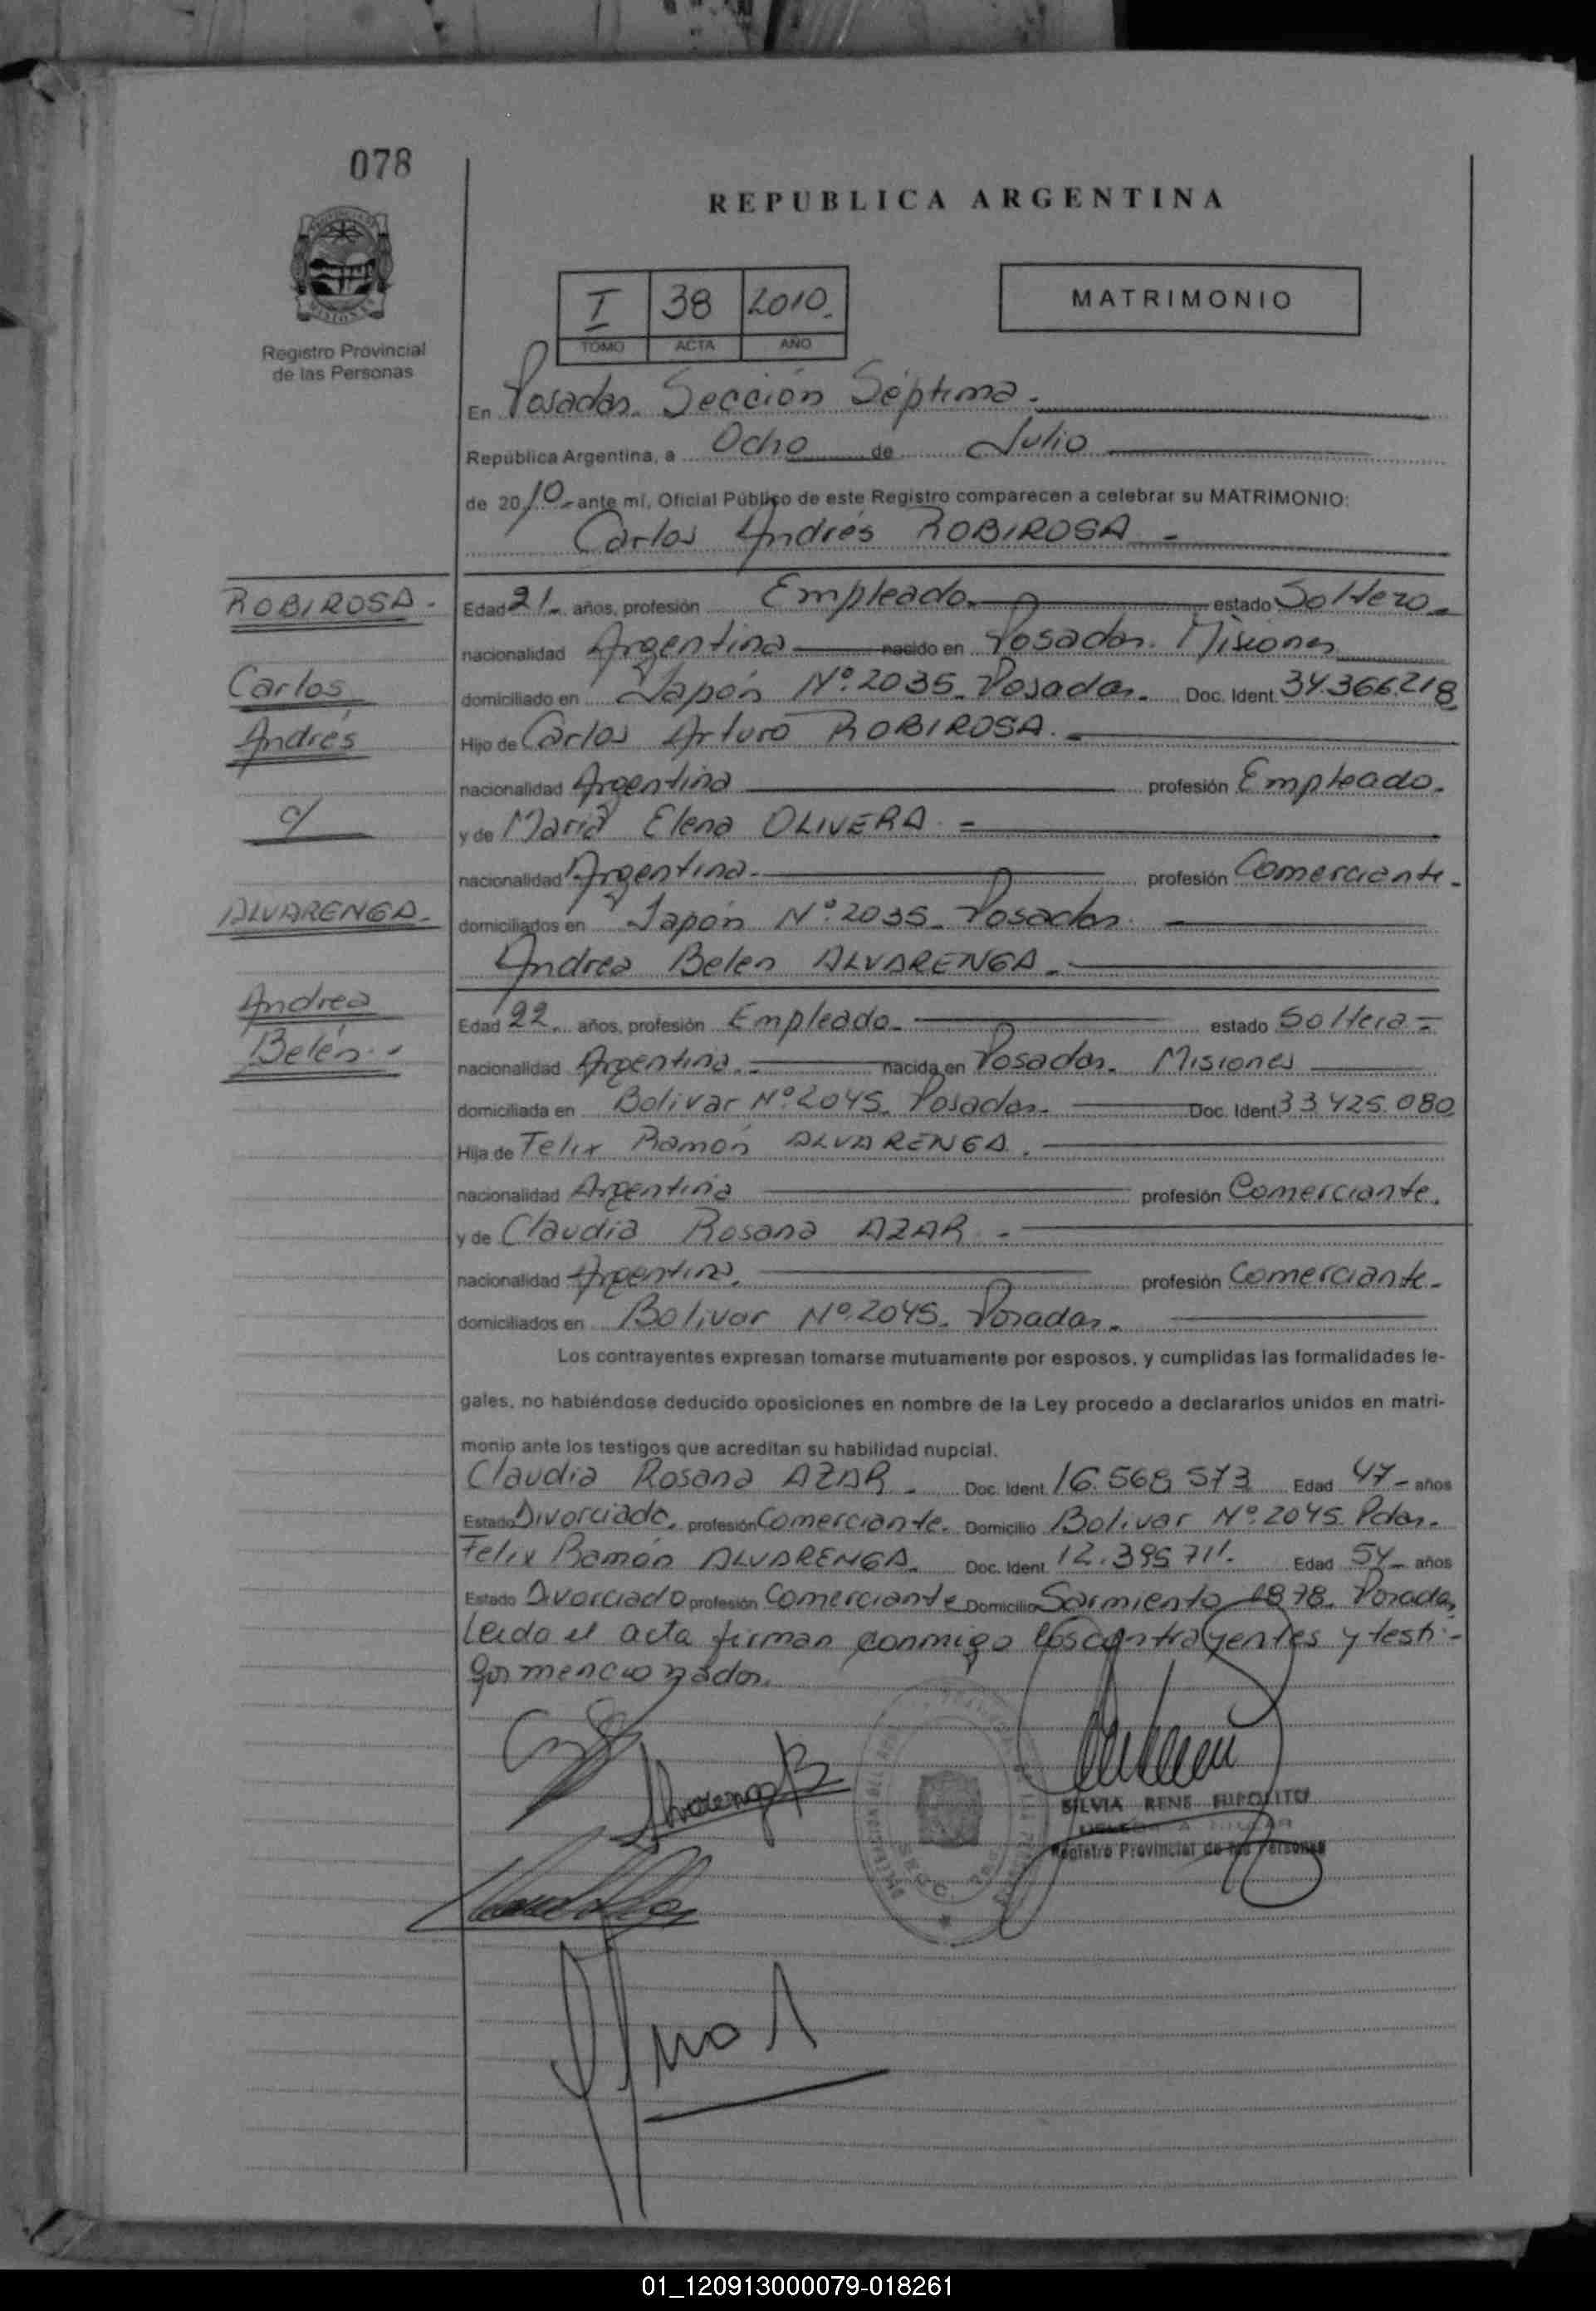 078
REPUBLICA ARGENTINA
I 38 2010.
TOMO ACTA AÑO
MATRIMONIO
Registro Provincial
de las Personas
En Posadas. Sección Séptima.
República Argentina, a Ocho de Julio
de 2010 ante mí, Oficial Público de este Registro comparecen a celebrar su MATRIMONIO:
Carlos Andrés ROBIROSA.-
ROBIROSA.
Edad 21. años, profesión Empleado. estado Soltero.
nacionalidad Argentina nacido en Posadas. Misiones
Carlos
domiciliado en Japón Nº.2035. Posadas. Doc. Ident. 34.366.218.
Andrés
Hijo de Carlos Arturo ROBIROSA.
nacionalidad Argentina profesión Empleado.
c/
y de Maria Elena OLIVERA. -
nacionalidad Argentina. profesión Comerciante.
ALVARENGA.
domiciliados en Japón Nº.2035. Posadas.
Andrea Belen ALVARENGA.
Andrea
Edad 22. años, profesión Empleada. estado Soltera-
Belén.
nacionalidad Argentina. nacida en Posadas. Misiones
domiciliada en Bolivar Nº.2045. Posadas. Doc. Ident 33.425.080
Hija de Felix Ramón ALVARENGA.
nacionalidad Argentina profesión Comerciante.
y de Claudia Rosana AZAR.
nacionalidad Argentina. profesión Comerciante.
domiciliados en Bolivar Nº.2045. Posadas.
Los contrayentes expresan tomarse mutuamente por esposos, y cumplidas las formalidades le-
gales, no habiéndose deducido oposiciones en nombre de la Ley procedo a declararlos unidos en matri-
monio ante los testigos que acreditan su habilidad nupcial.
Claudia Rosana AZAR. Doc. Ident. 16.568.573 Edad 47- años
Estado Divorciada. profesión Comerciante. Domicilio Bolivar Nº.2045. Pdas.
Felix Ramón ALVARENGA. Doc. Ident. 12.395.711. Edad 54- años
Estado Divorciado profesión Comerciante Domicilio Sarmiento 1878. Posadas
Leida el acta firman conmigo los contrayentes y testi-
gos mencionados.
Alvarenga B
SILVIA RENE HIPOLITO
Registro Provincial de las Personas
01_120913000079-018261